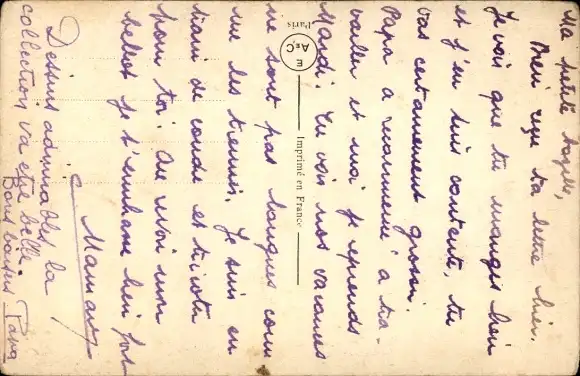 Ma petite
Bien reçu ta lettre hier.
Je vois que tu manges bien
et j'en suis contente, tu
vas certainement grossir.
Papa a recommencé à tra-
vailler et moi je reprends
Mardi. Tu vois nos vacances
ne sont pas longues com
me les tiennes. Je suis en
train de coudre et tricoter
pour toi. Au revoir mon
bébé je t'embrasse bien fort
Maman
Dessins admirables. la
collection va être belle.
Bons baisers Papa
Paris
E
A C
Imprimé en France